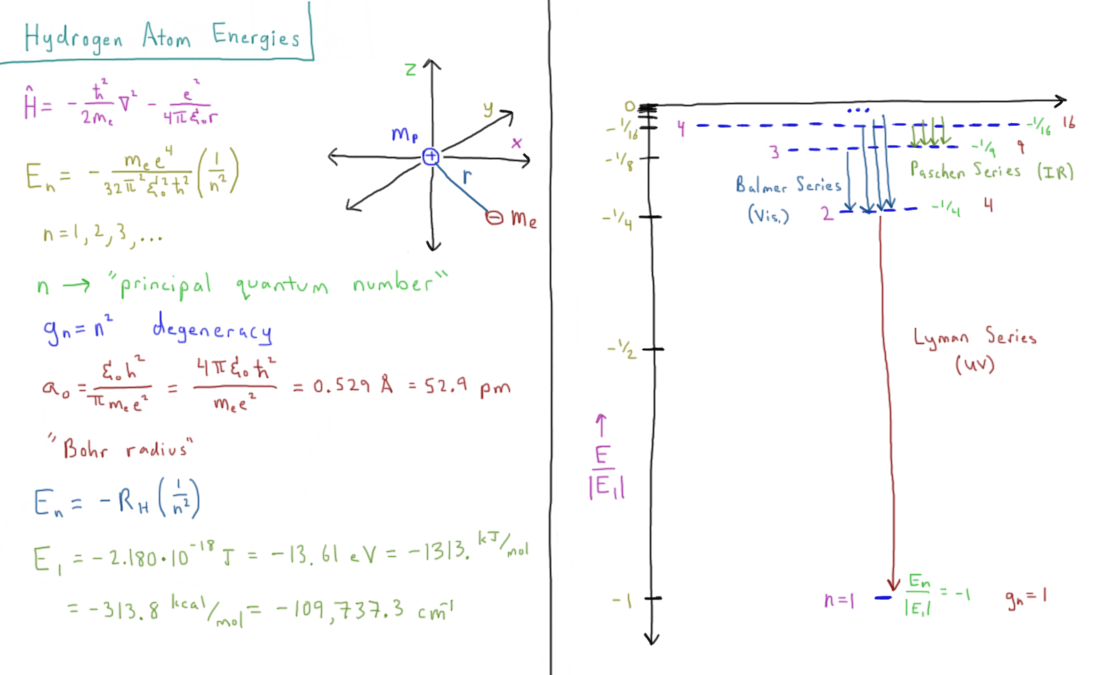 Hydrogen Atom Energies
Ĥ = -ħ²/2mₑ ∇² - e²/4πε₀r
Eₙ = -mₑe⁴/32π²ε₀²ħ² (1/n²)
n=1,2,3,...
n → "principal quantum number"
gₙ=n² degeneracy
a₀ = ε₀h²/πmₑe² = 4πε₀ħ²/mₑe² = 0.529 Å = 52.9 pm
"Bohr radius"
Eₙ = -R_H (1/n²)
E₁ = -2.180·10⁻¹⁸ J = -13.61 eV = -1313. kJ/mol
= -313.8 kcal/mol = -109,737.3 cm⁻¹
z
y
x
mₚ
+
r
⊖ mₑ
0
...
-1/16
4
-1/16 16
3
-1/9 9
-1/8
Paschen Series (IR)
Balmer Series
(Vis.)
2
-1/4 4
-1/4
Lyman Series
(UV)
-1/2
↑
E/|E₁|
-1
n=1
Eₙ/|E₁| = -1
gₙ=1